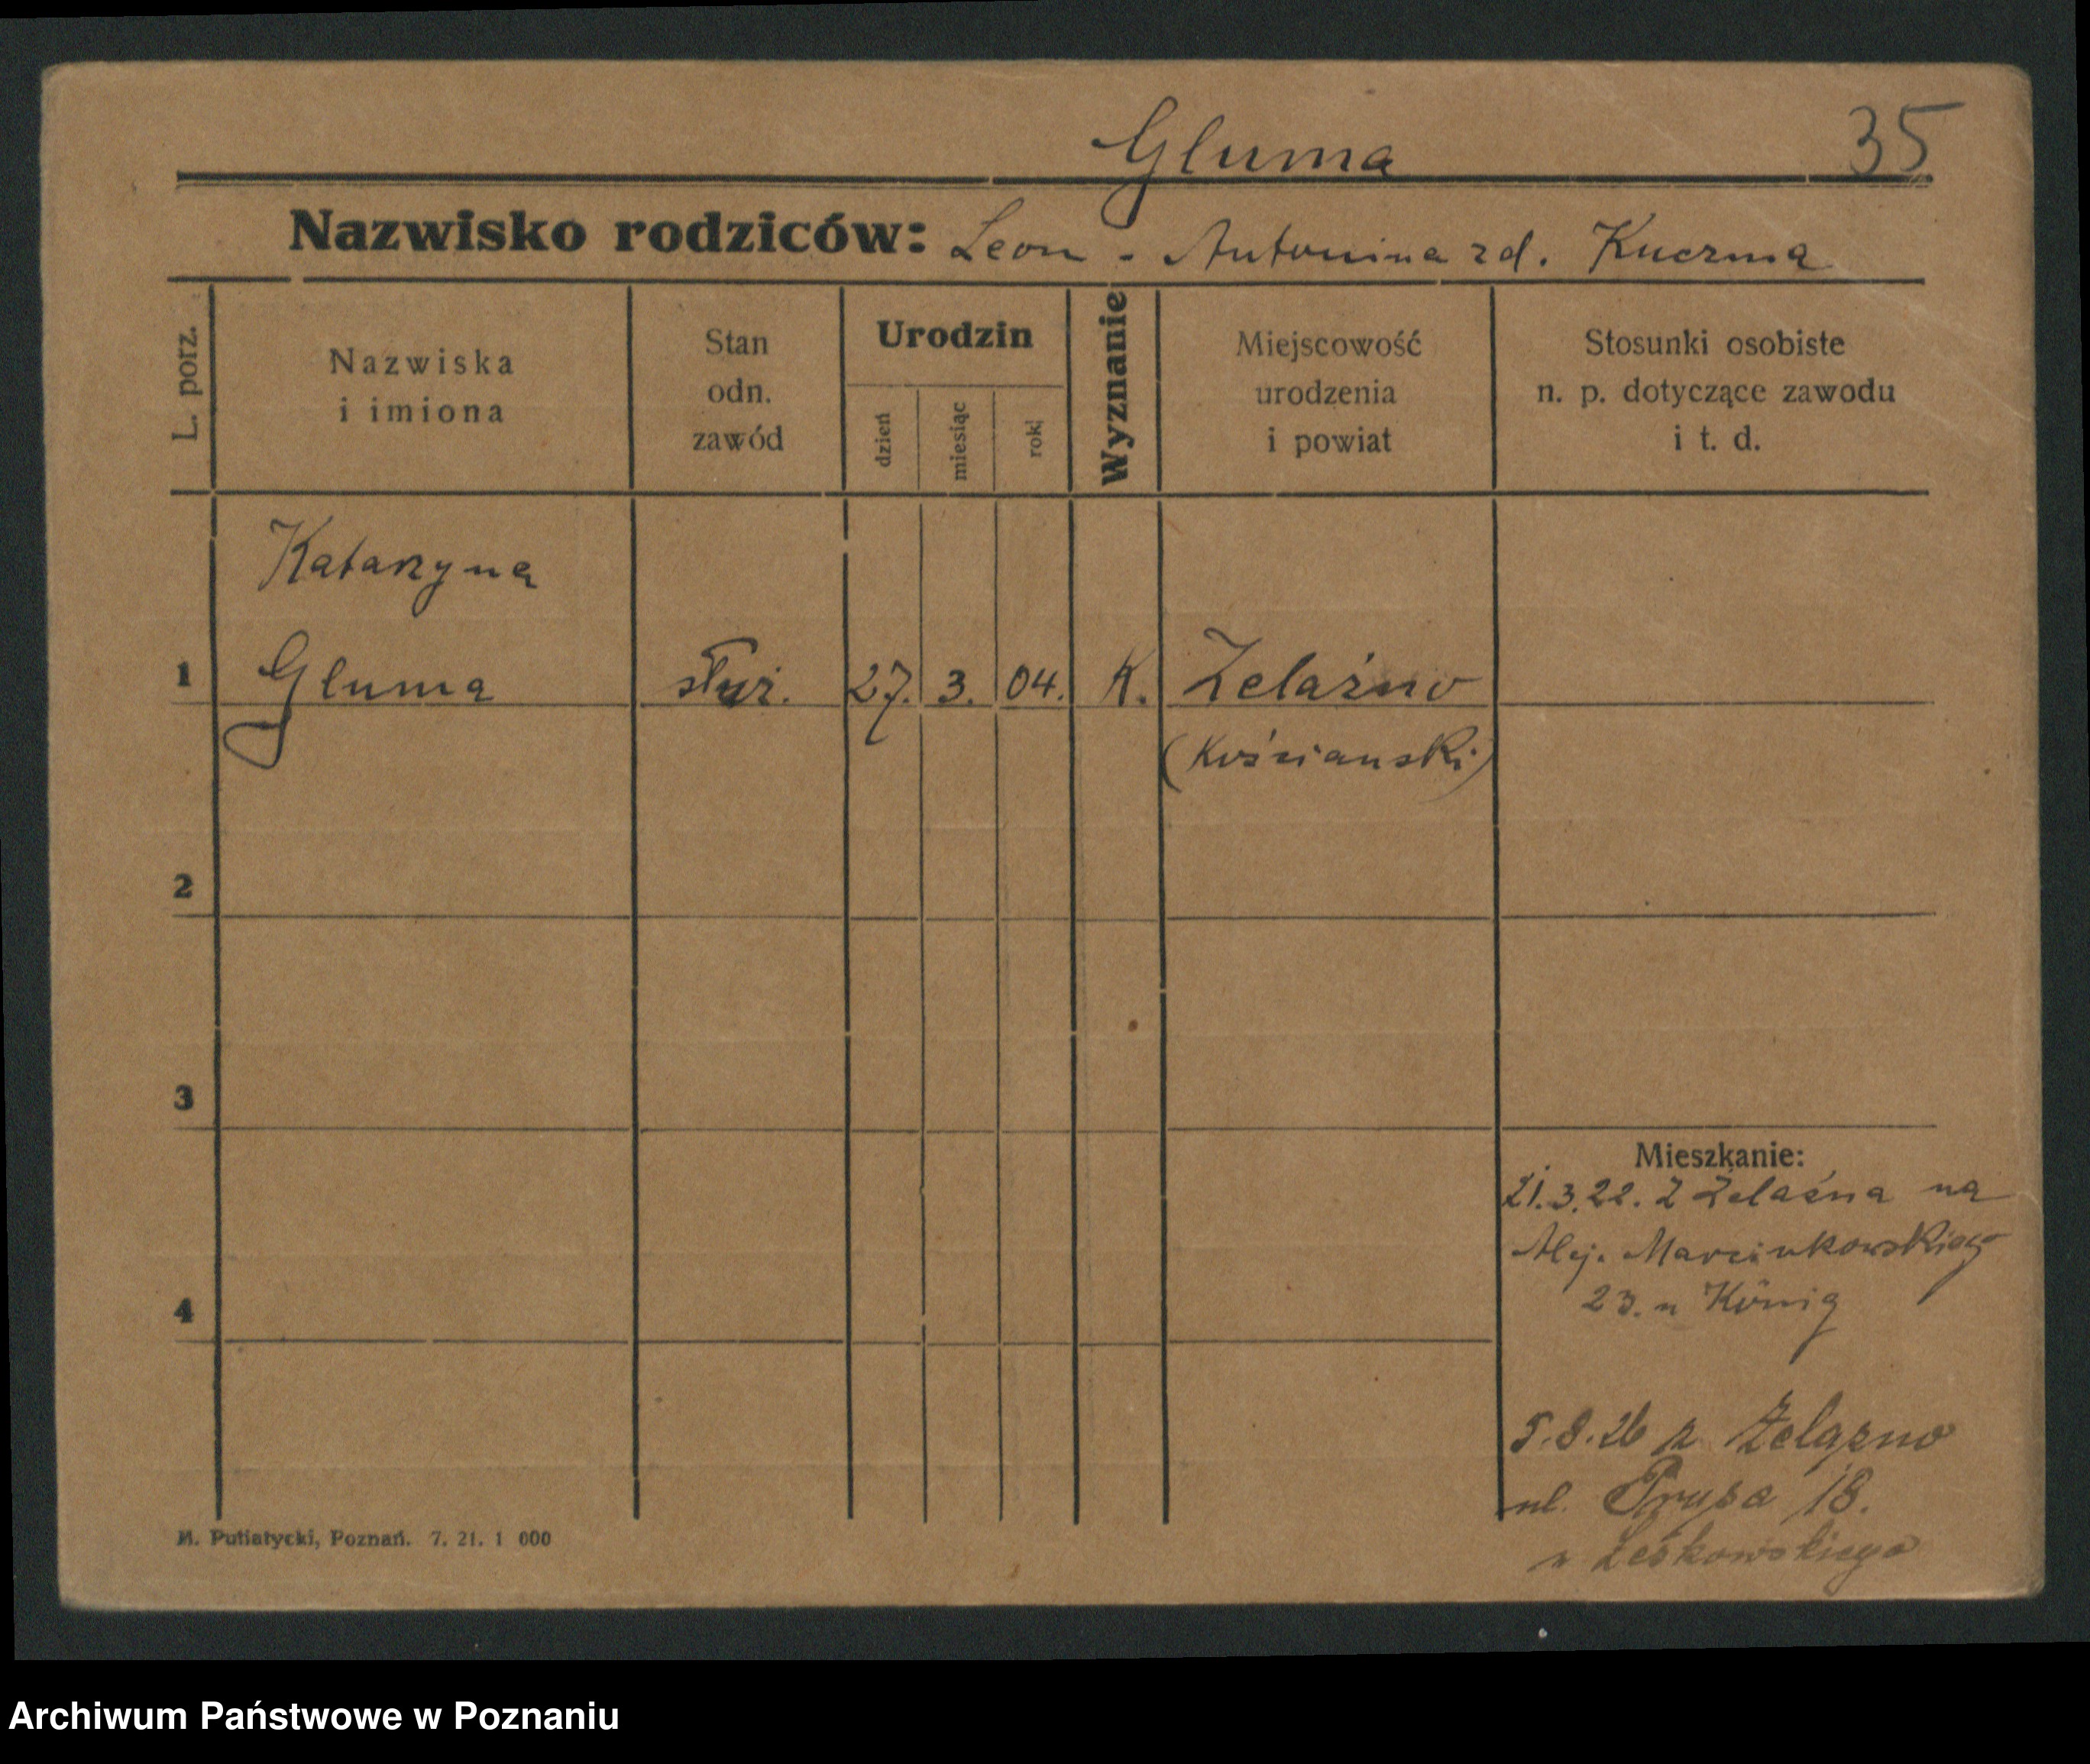 Gluma 35
Nazwisko rodziców: Leon - Antonina zd. Kuczma
L. porz.
Nazwiska
i imiona
Stan
odn.
zawód
Urodzin
dzień
miesiąc
rok
Wyznanie
Miejscowość
urodzenia
i powiat
Stosunki osobiste
n. p. dotyczące zawodu
i t. d.
Katarzyna
1 Gluma służ. 27. 3. 04. K. Żelaźno
(Kościanski)
2
3
Mieszkanie:
21.3.22. Z Żelaźna na
Alej. Marcinkowskiego
23. u König
4
5.8.26 z Żelazno
ul. Prusa 18.
u Leskowskiego
M. Putiatycki, Poznań. 7. 21. 1 000
Archiwum Państwowe w Poznaniu